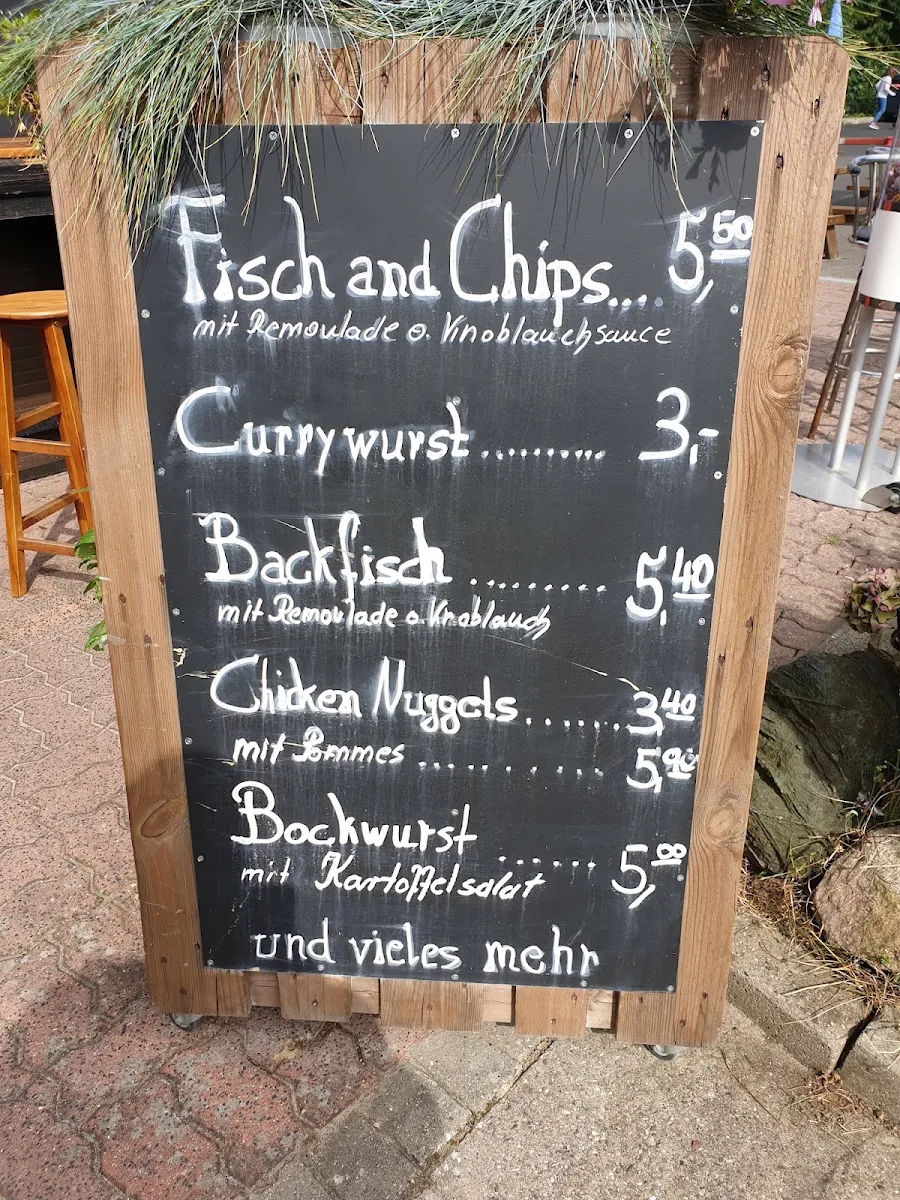 Fisch and Chips.... 5,50
mit Remoulade o. Knoblauchsauce
Currywurst .......... 3,-
Backfisch ......... 5,40
mit Remoulade o. Knoblauch
Chicken Nuggels....... 3,40
mit Pommes ......... 5,90
Bockwurst
mit Kartoffelsalat ...... 5,00
und vieles mehr